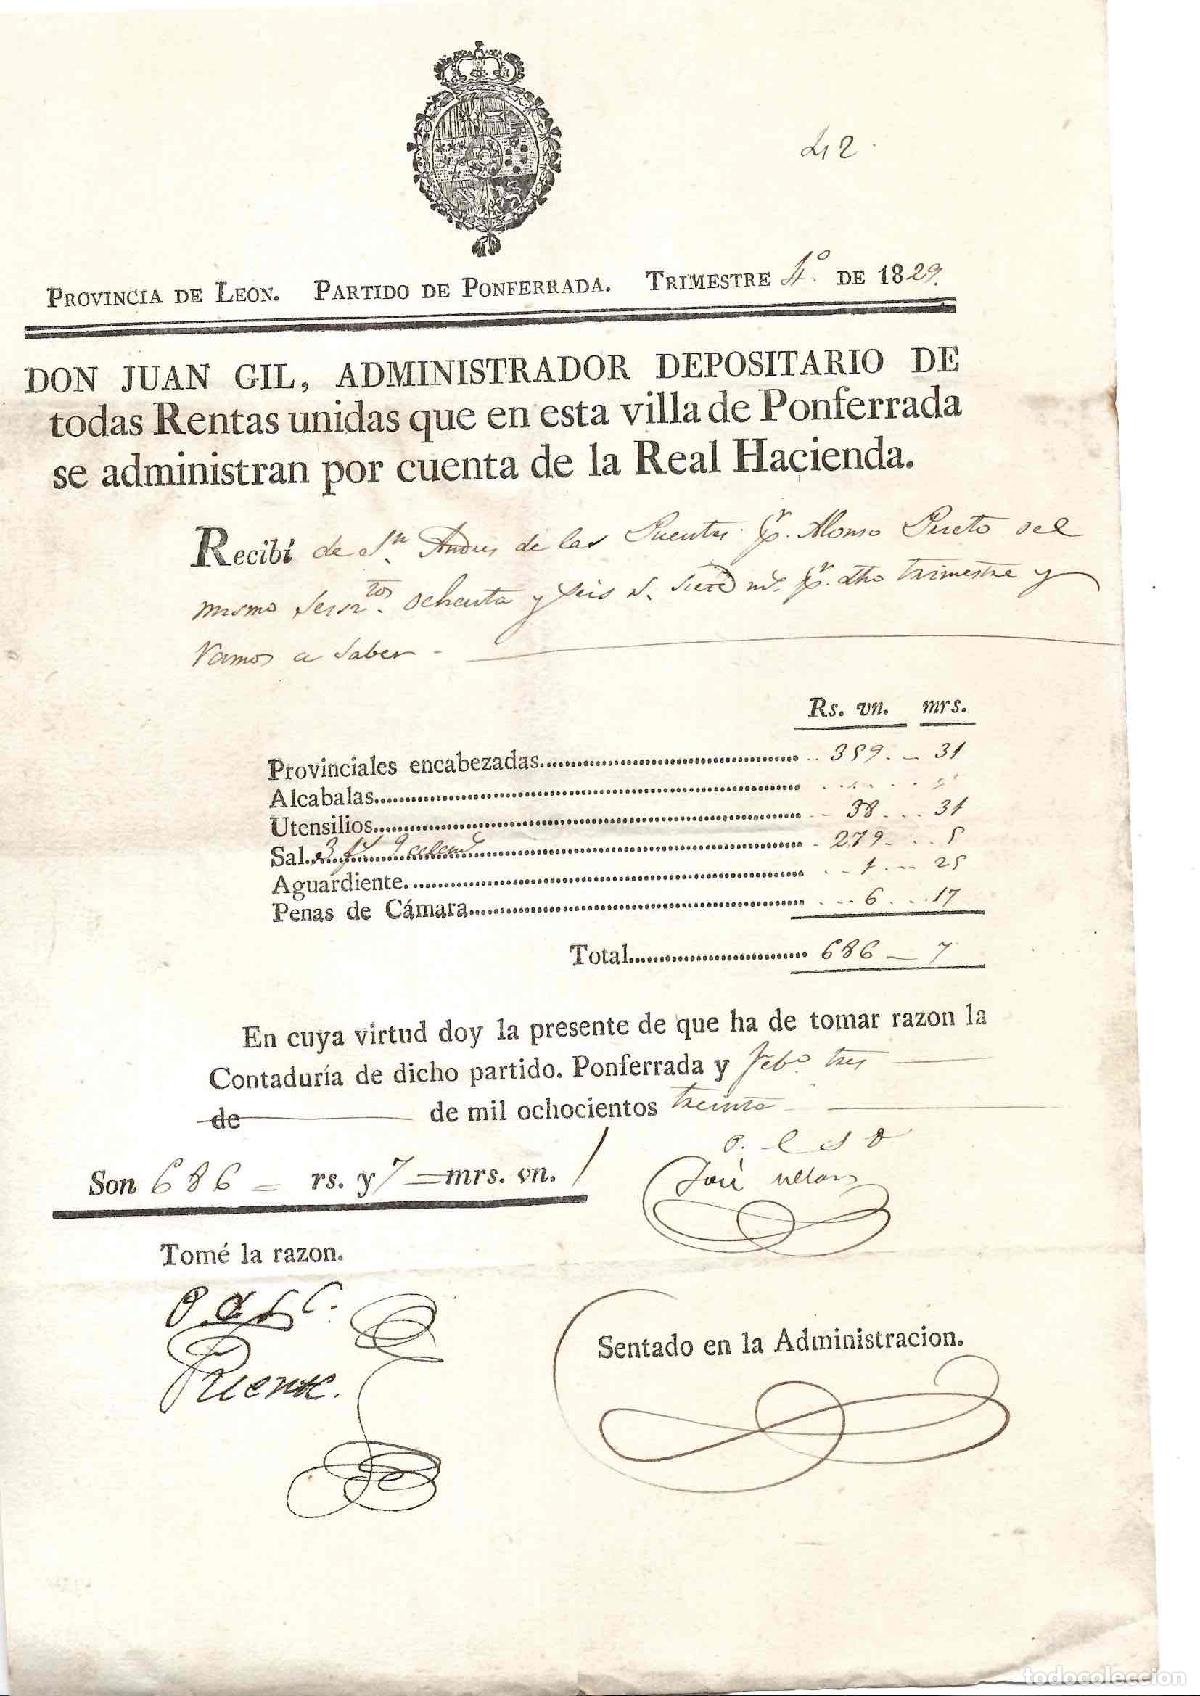 42
PROVINCIA DE LEON. PARTIDO DE PONFERRADA. TRIMESTRE 4º DE 1829.
DON JUAN GIL, ADMINISTRADOR DEPOSITARIO DE
todas Rentas unidas que en esta villa de Ponferrada
se administran por cuenta de la Real Hacienda.
Recibí de Sn Andres de las Puentes pr. Alonso Prieto del
mismo seisztos. ochenta y seis rs. siete ms. pr. dho trimestre y
Ramos a saber -
Rs. vn. mrs.
Provinciales encabezadas 359 31
Alcabalas
Utensilios 38 31
Sal. 3 fs 9 279 5
Aguardiente 1 25
Penas de Cámara 6 17
Total 686 7
En cuya virtud doy la presente de que ha de tomar razon la
Contaduría de dicho partido. Ponferrada y Febo tres
de de mil ochocientos treinta
Son 686 = rs. y 7 = mrs. vn.
José
Tomé la razon.
Puente.
Sentado en la Administracion.
todocoleccion